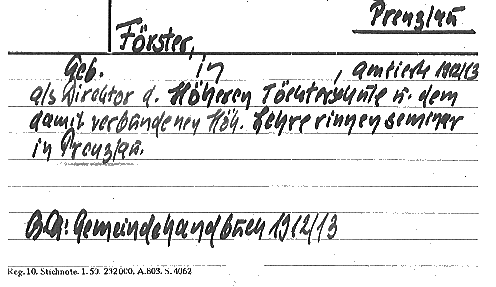 Prenzlau
Förster,
Geb. in , amtiert 1912/13
als Direktor d. Höheren Töchterschule u. dem
damit verbundenen Höh. Lehrerinnenseminar
in Prenzlau.
BQ: Gemeindehandbuch 1912/13
Reg. 10. Stichnote. 1. 50. 232000. A. 803. S. 4062